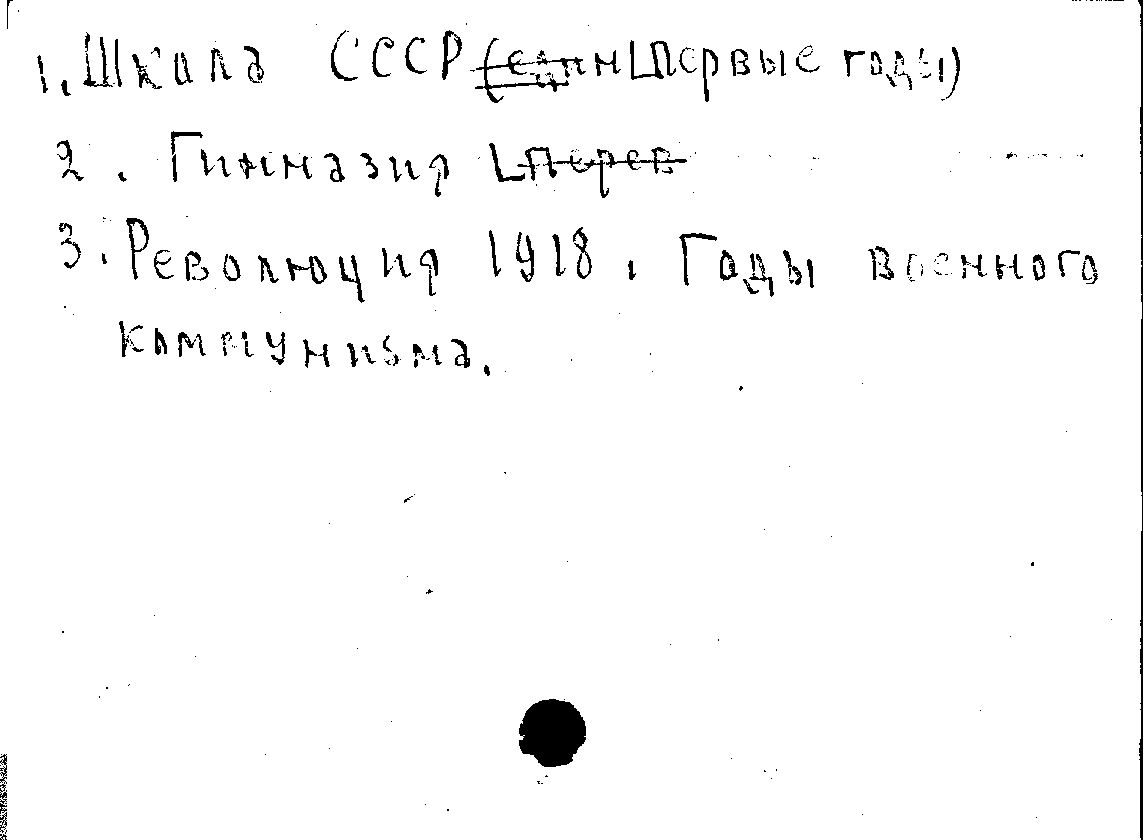 1. Школа СССР (един (первые годы)
2. Гимназия (перев
3. Революция 1918. Годы военного
коммунизма.